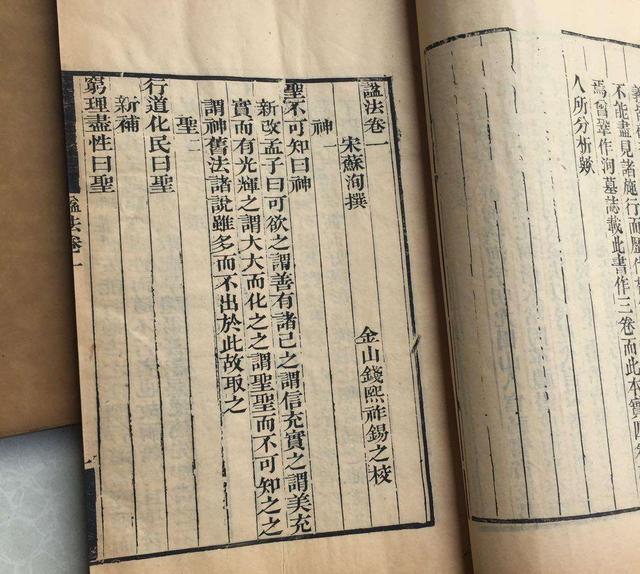 不能盡見諸施行而歷
焉曾鞏作洵墓誌載此書作三卷而此本
人所分析歟
謚法卷一
宋蘇洵撰
金山錢熙祚錫之校
神一
聖不可知曰神
新改孟子曰可欲之謂善有諸己之謂信充實之謂美充
實而有光輝之謂大大而化之之謂聖聖而不可知之之
謂神舊法諸說雖多而不出於此故取之
聖二
行道化民曰聖
新補
窮理盡性曰聖
謚法卷一